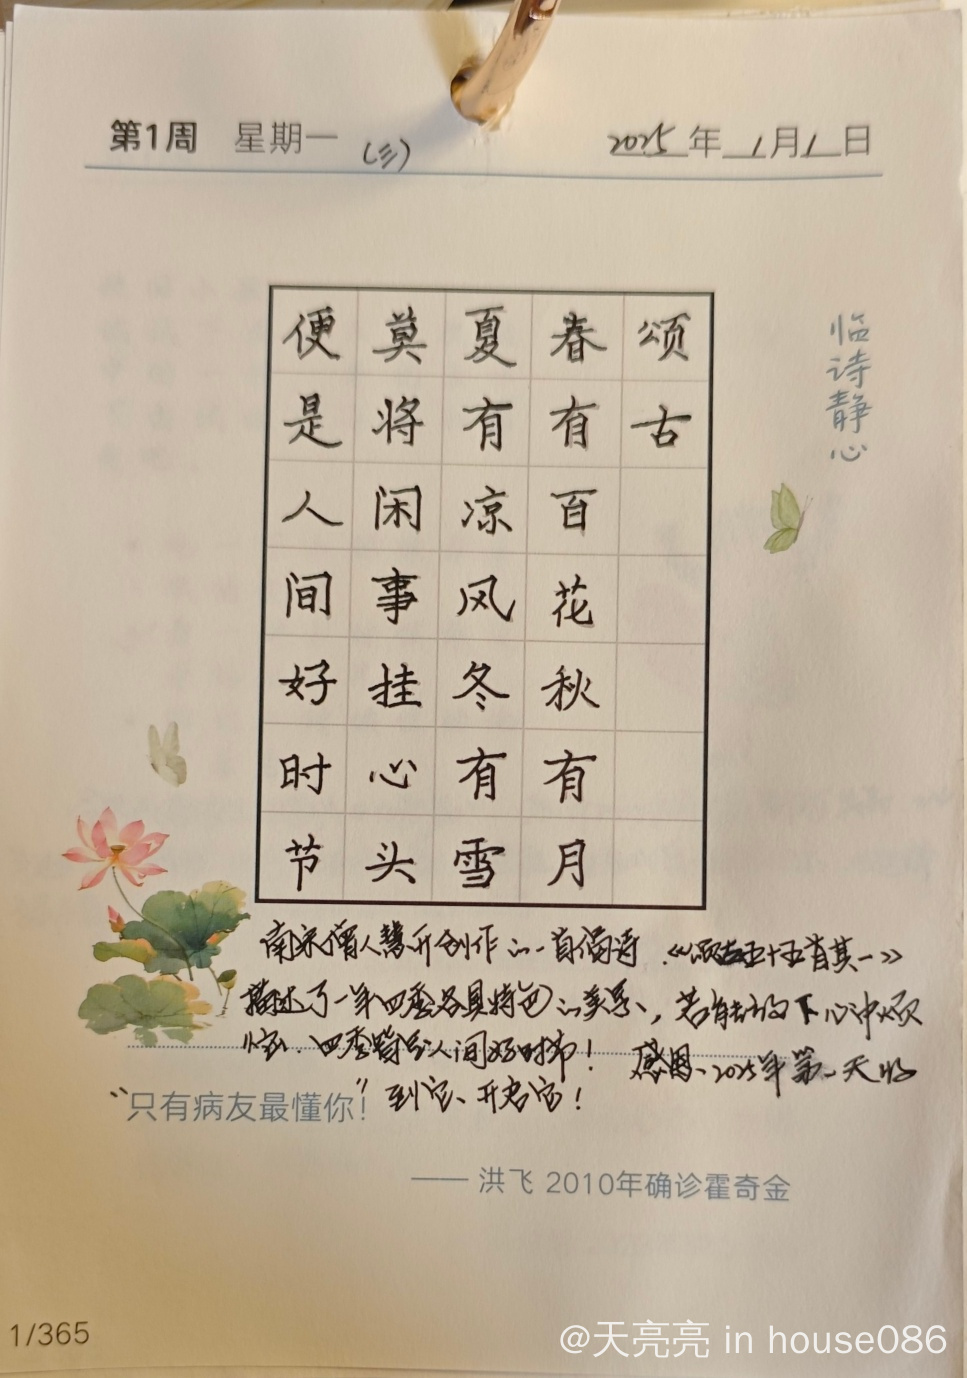 第1周 星期一 (三) 2025年1月1日
临诗静心
颂古
春有百花秋有月
夏有凉风冬有雪
莫将闲事挂心头
便是人间好时节
南宋僧人慧开创作的一首偈诗《颂古五十五首其一》
描述了一年四季各具特色的美景,若能放下心中烦
恼、四季皆是人间好时节! 感恩、2025年第一天收
到它、开启它!
“只有病友最懂你!”
—— 洪飞 2010年确诊霍奇金
1/365
@天亮亮 in house086